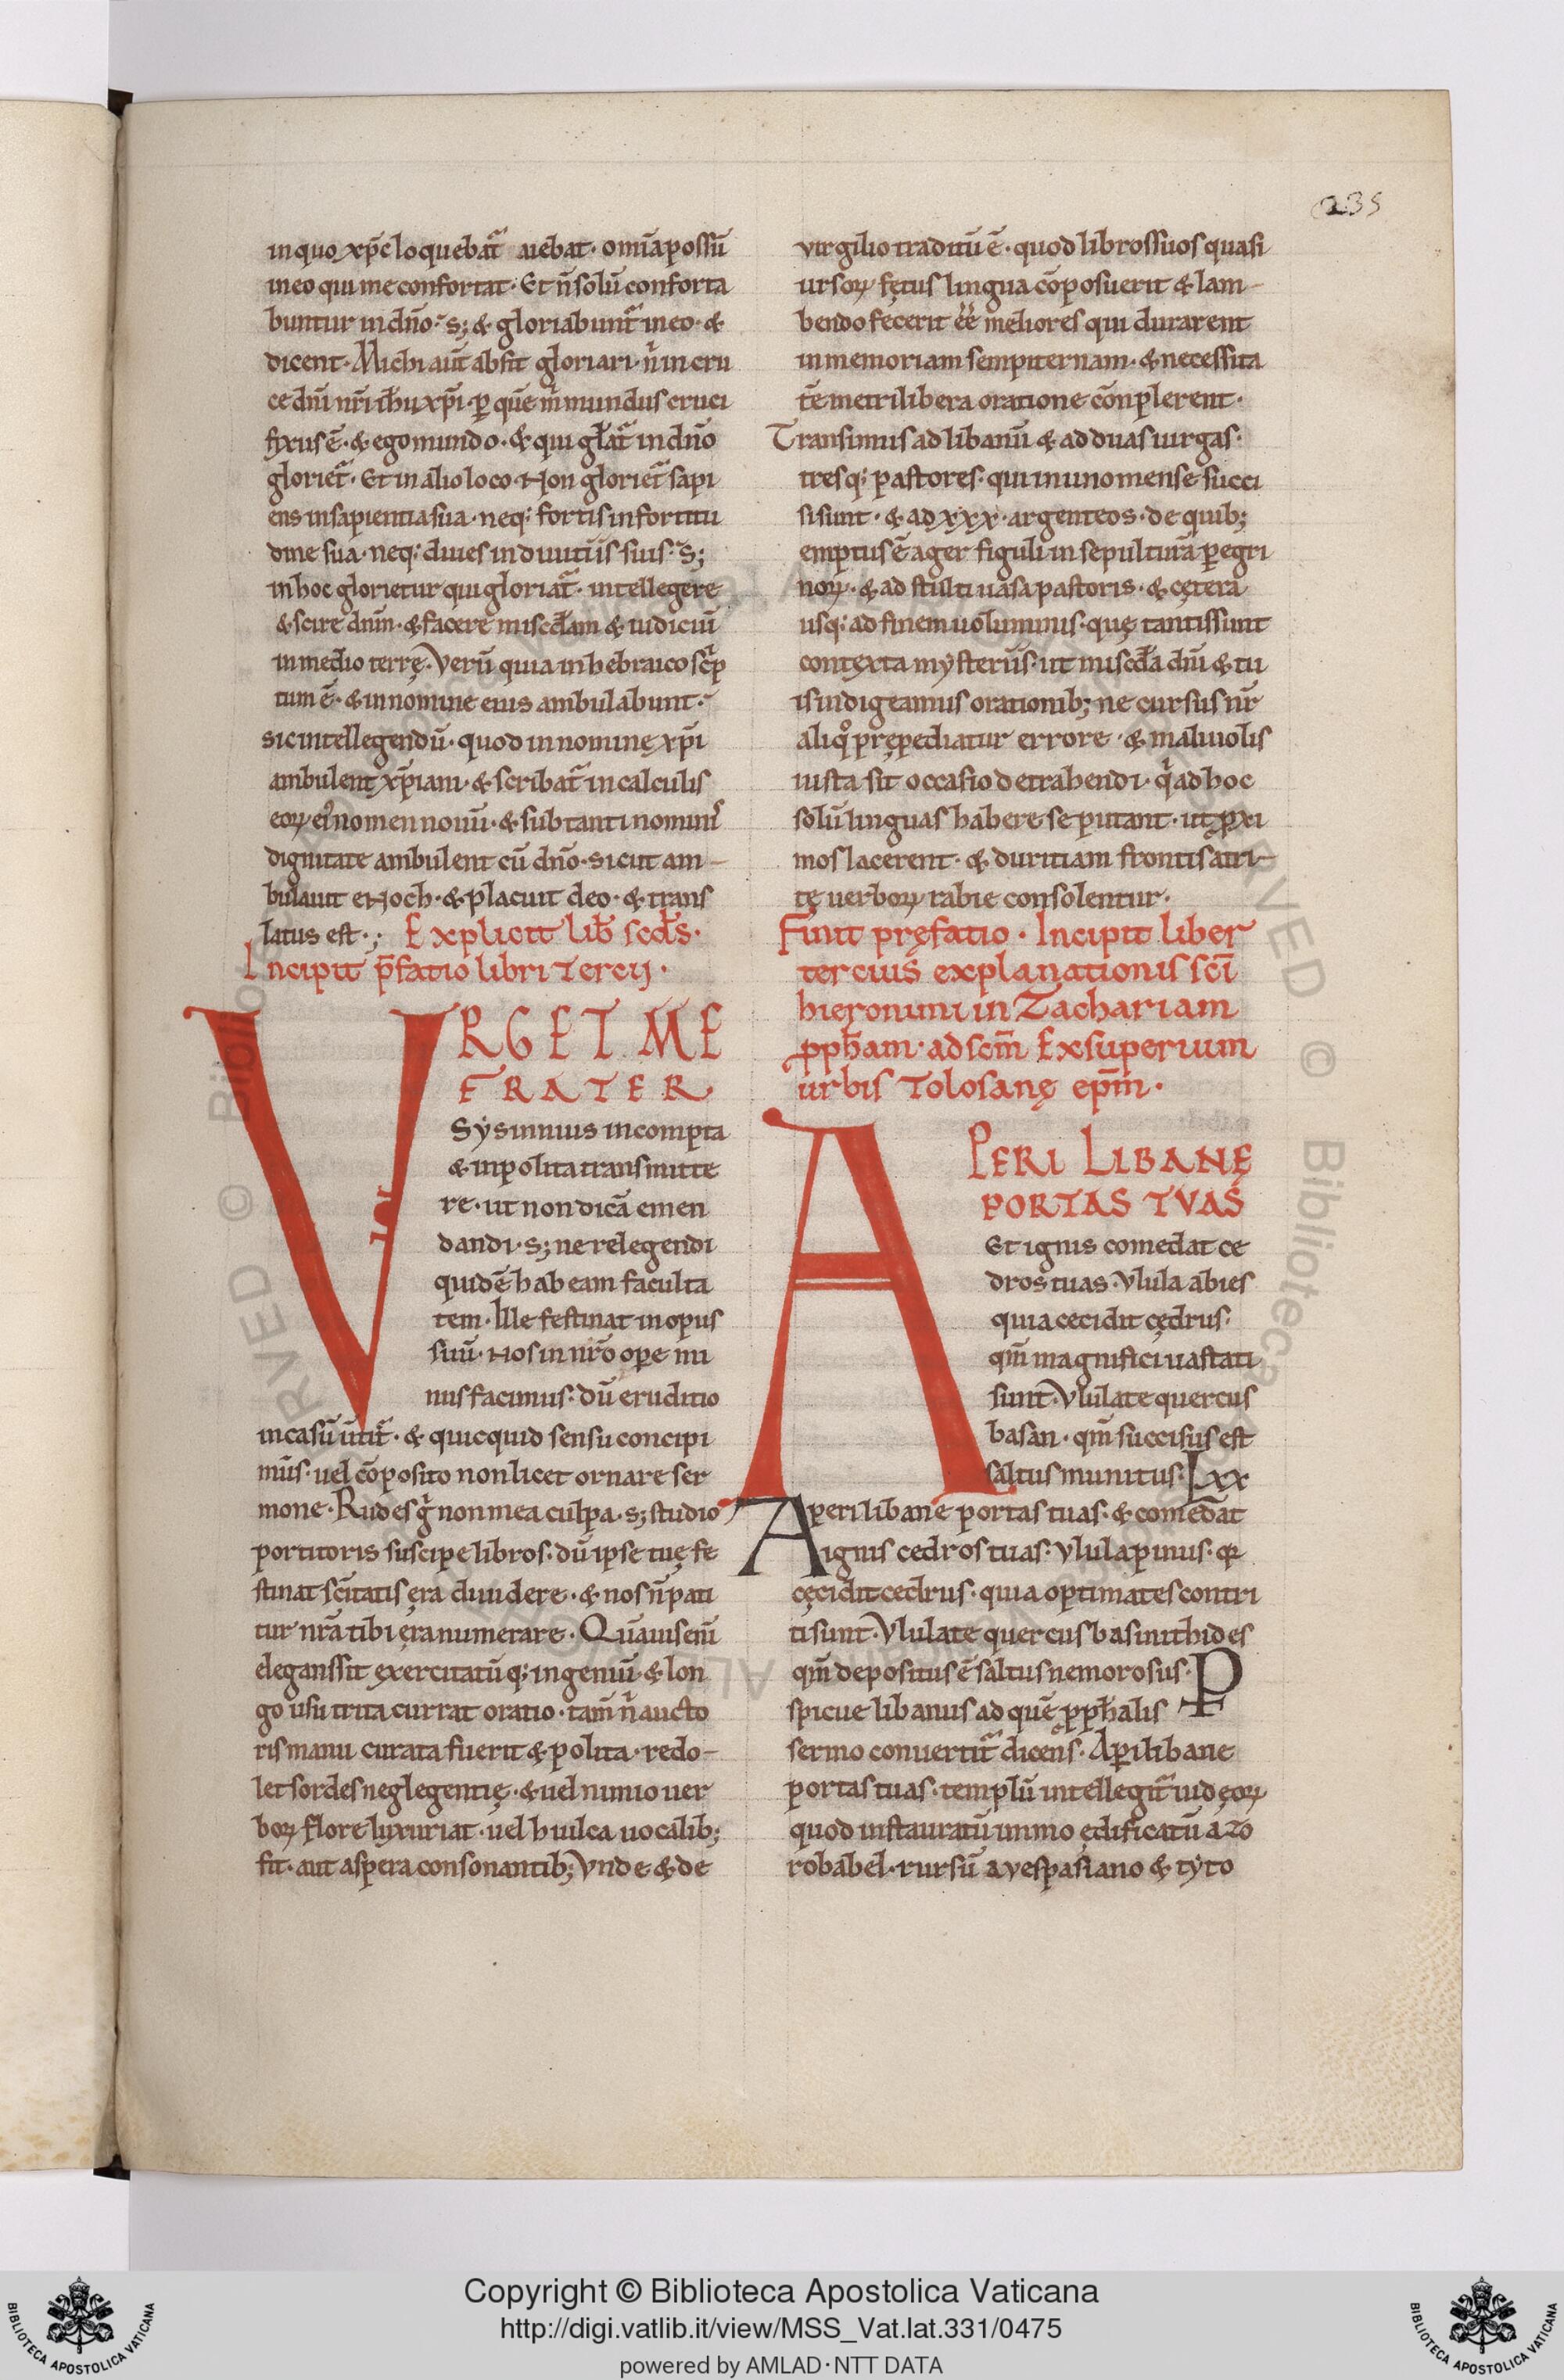 235
in quo xp̄c loquebat᷑ aiebat· om̄ia possū
in eo qui me confortat· Et n̄ solū conforta
buntur in dn̄o· s; & gloriabunt᷑ in eo· &
dicent· Michi aut̄ absit gloriari· n̄ in cru
ce dn̄i nr̄i ih̄u xp̄i· ꝑ quē m̄ mundus cruci
fyxus ē· & ego mundo· & qui gl̄at᷑ in dn̄o
gloriet᷑· Et in alio loco· Non gloriet᷑ sapi
ens in sapientia sua· neq; fortis in fortitu
dine sua· neq; diues in diuitiis suis· s;
in hoc glorietur qui gloriat᷑· intellegere
& scire dn̄m· & facere misc̄dam & iudiciū
in medio terrę· Verū quia in hebraico sc̄p
tum ē· & in nomine eius ambulabunt·
sic intellegendū· quod in nominę xp̄i
ambulent xp̄iani· & scribat᷑ in calculis
eoꝝ ei nomen nouū· & sub tanti nominis
dignitate ambulent cū dn̄o· sicut am-
bulauit eNoch· & placuit deo· & trans
latus est·; Explicit lib̄ scd̄s·
Incipit p̄fatio libri Tercij·
VRGET ME
FRATER
Sysinnius incompta
& inpolita transmitte
re· ut non dicā emen
dandi· s; ne relegendi
quidē habeam faculta
tem· Ille festinat in opus
suū· Nos in nr̄o ope mi
nus facimus· dū eruditio
in casū ūtit᷑· & quicquid sensu concipi
mus· uel cōposito non licet ornare ser
mone· Rudes g̊ non mea culpa· s; studio
portitoris suscipe libros· dū ipse tuę fe
stinat sc̄itatis ęra diuidere· & nos n̄ pati
tur nr̄a tibi ęra numerare· Quāuis eni̅
elegans sit exercitatūq; ingeniū & lon
go usu trita currat oratio· tam̄ n̄ aucto
ris manu curata fuerit & polita· redo-
let sordes neglegentię· & uel nimio uer
boꝝ flore luxuriat· uel hiulca uocalib;
fit· aut aspera consonantib; Vnde & de
virgilio traditū ē· quod libros suos quasi
ursoꝝ fętus lingua cōposuerit & lam-
bendo fecerit ēē meliores qui durarent
in memoriam sempiternam· & necessita
tē metri libera oratione cōnplerent·
Transimus ad libanū & ad duas uirgas·
tresq; pastores· qui in uno mense succi
si sunt· & ad xxx· argenteos· de quib;
emptus ē ager figuli in sepulturā ꝑegri
noꝝ· & ad stulti uasa pastoris· & cętera
usq; ad finem uoluminis· quę tantis sunt
contexta mysteriis· ut misc̄da dn̄i & tu
is indigeamus orationib; ne cursus nr̄
aliqͦ prępediatur errore· & maliuolis
iusta sit occasio detrahendi· q̄ ad hoc
solū linguas habere se putant· ut ꝓxi
mos lacerent· & duritiam frontis attri-
tę uerboꝝ rabie consolentur·
Finit pręfatio· Incipit liber
tercius explanationis sci̅
hieronimi in Zachariam
pph̄am· ad scm̄ Exsuperium
urbis Tolosanę ep̄m·
APERI LIBANĘ
PORTAS TVAS
Et ignis comedat ce
dros tuas· Vlula abies
quia cecidit cędrus·
qm̄ magnifici uastati
sunt· Vlulate quercus
basan· qm̄ succisus est
saltus munitus· Lxx
Aperi libane portas tuas· & comedat
ignis cedros tuas· Vlula pinus· qꝛ
cęcidit cedrus· quia optimates contri
ti sunt· Vlulate quercus basinithides
qm̄ depositus ē saltus nemorosus· P
spicue libanus ad quē pph̄alis
sermo conuertit᷑ dicens· Aperi libane
portas tuas· templū intellegit᷑ iudęoꝝ
quod instauratū immo ędificatū a zo
robabel· rursū a vespasiano & tyto
Copyright © Biblioteca Apostolica Vaticana
http://digi.vatlib.it/view/MSS_Vat.lat.331/0475
powered by AMLAD·NTT DATA
BIBLIOTECA APOSTOLICA VATICANA
BIBLIOTECA APOSTOLICA VATICANA